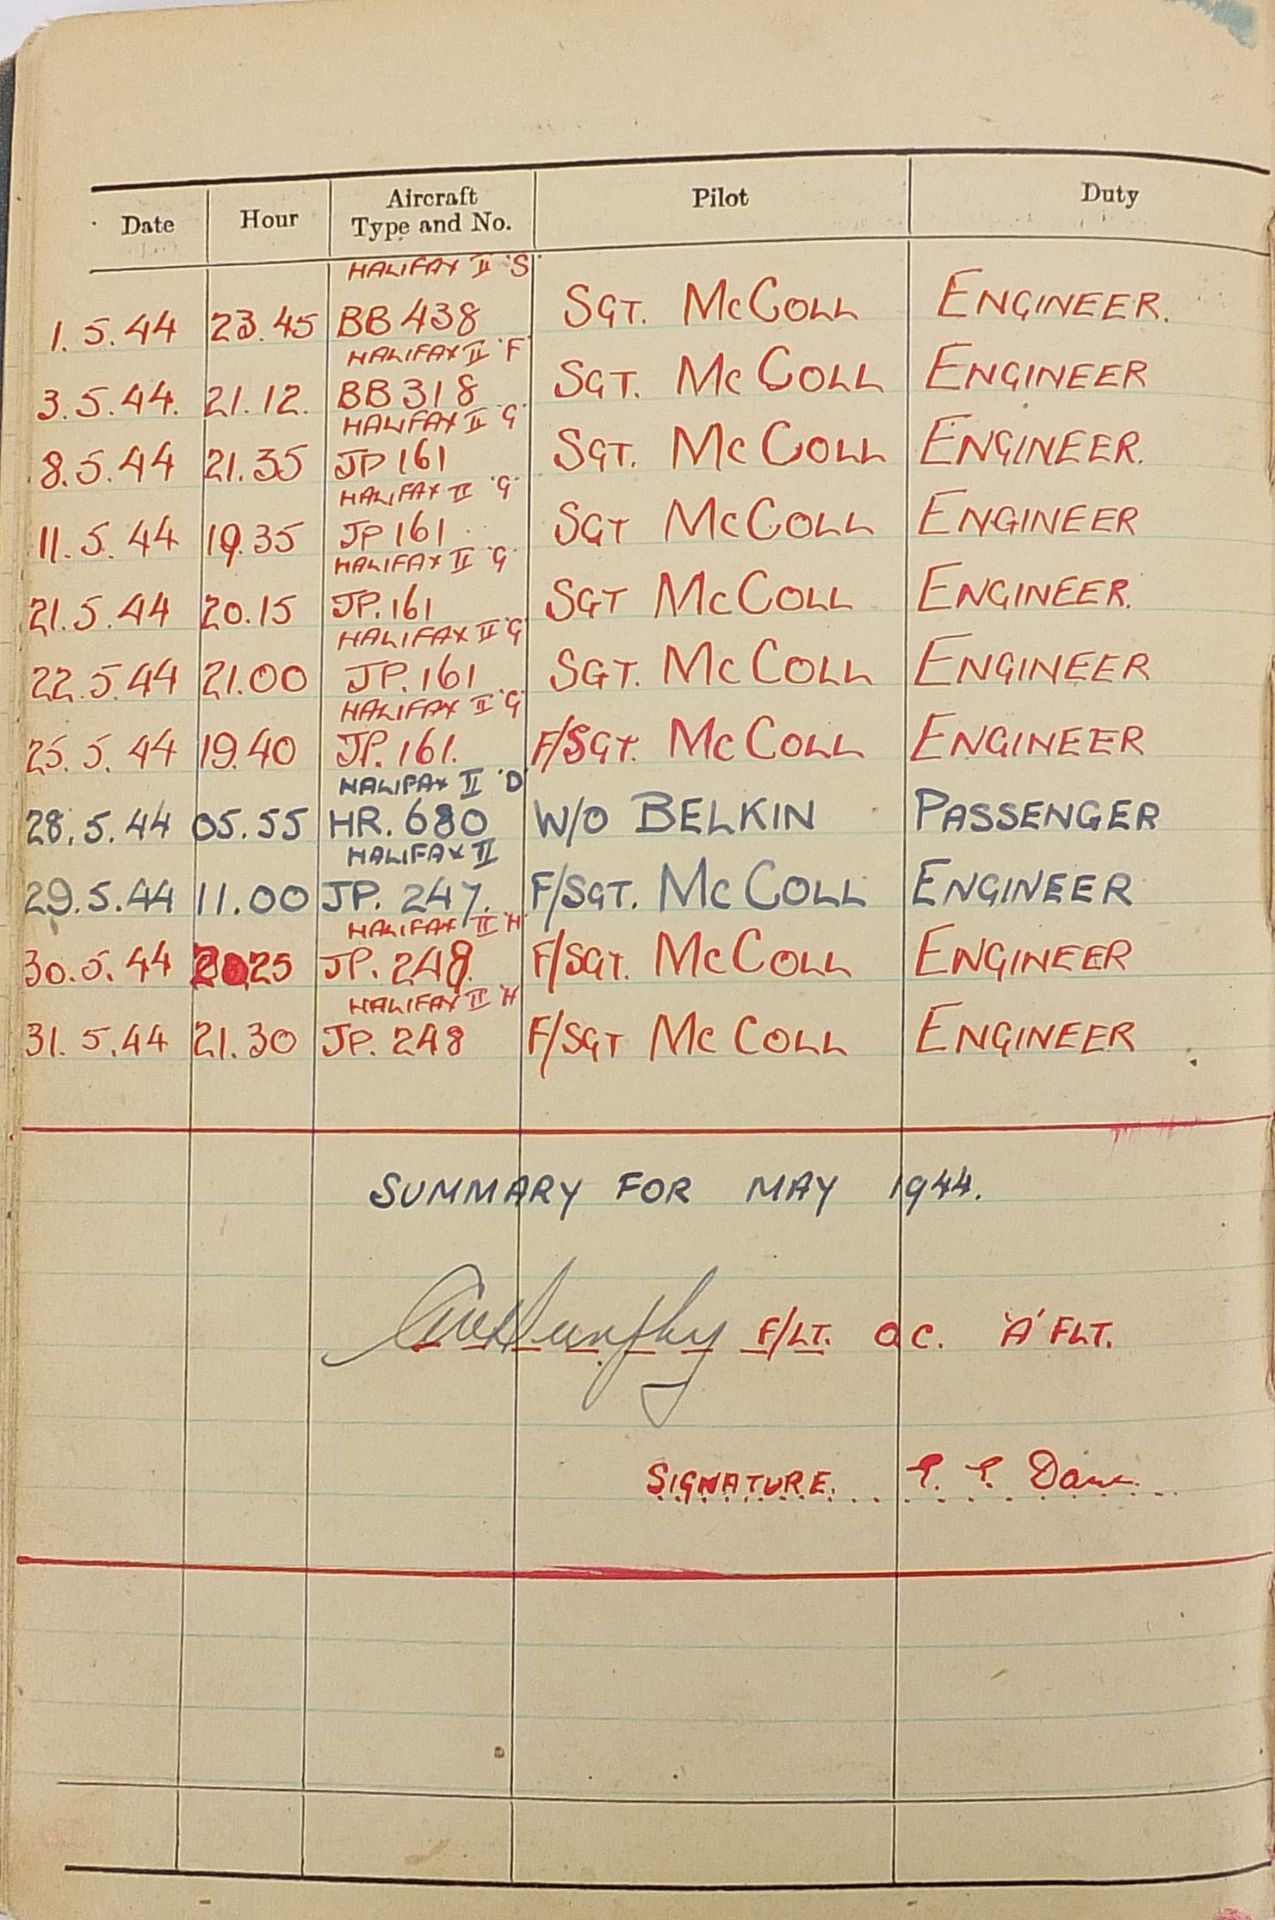 Date Hour Aircraft Type and No. Pilot Duty
HALIFAX II 'S'
1.5.44 23.45 BB 438 SGT. McCOLL ENGINEER.
HALIFAX II 'F'
3.5.44. 21.12. BB 318 SGT. McCOLL ENGINEER
HALIFAX II 'G'
8.5.44 21.35 JP 161 SGT. McCOLL ENGINEER.
HALIFAX II 'G'
11.5.44 19.35 JP 161 SGT McCOLL ENGINEER
HALIFAX II 'G'
21.5.44 20.15 JP.161 SGT McCOLL ENGINEER.
HALIFAX II 'G'
22.5.44 21.00 JP.161 SGT. McCOLL ENGINEER
HALIFAX II 'G'
25.5.44 19.40 JP.161. F/SGT. McCOLL ENGINEER
HALIFAX II 'D'
28.5.44 05.55 HR.680 W/O BELKIN PASSENGER
HALIFAX II
29.5.44 11.00 JP.247. F/SGT. McCOLL ENGINEER
HALIFAX II 'H'
30.5.44 2025 JP.248. F/SGT. McCOLL ENGINEER
HALIFAX II 'H'
31.5.44 21.30 JP.248 F/SGT McCOLL ENGINEER
SUMMARY FOR MAY 1944.
F/LT. O.C. 'A' FLT.
SIGNATURE.